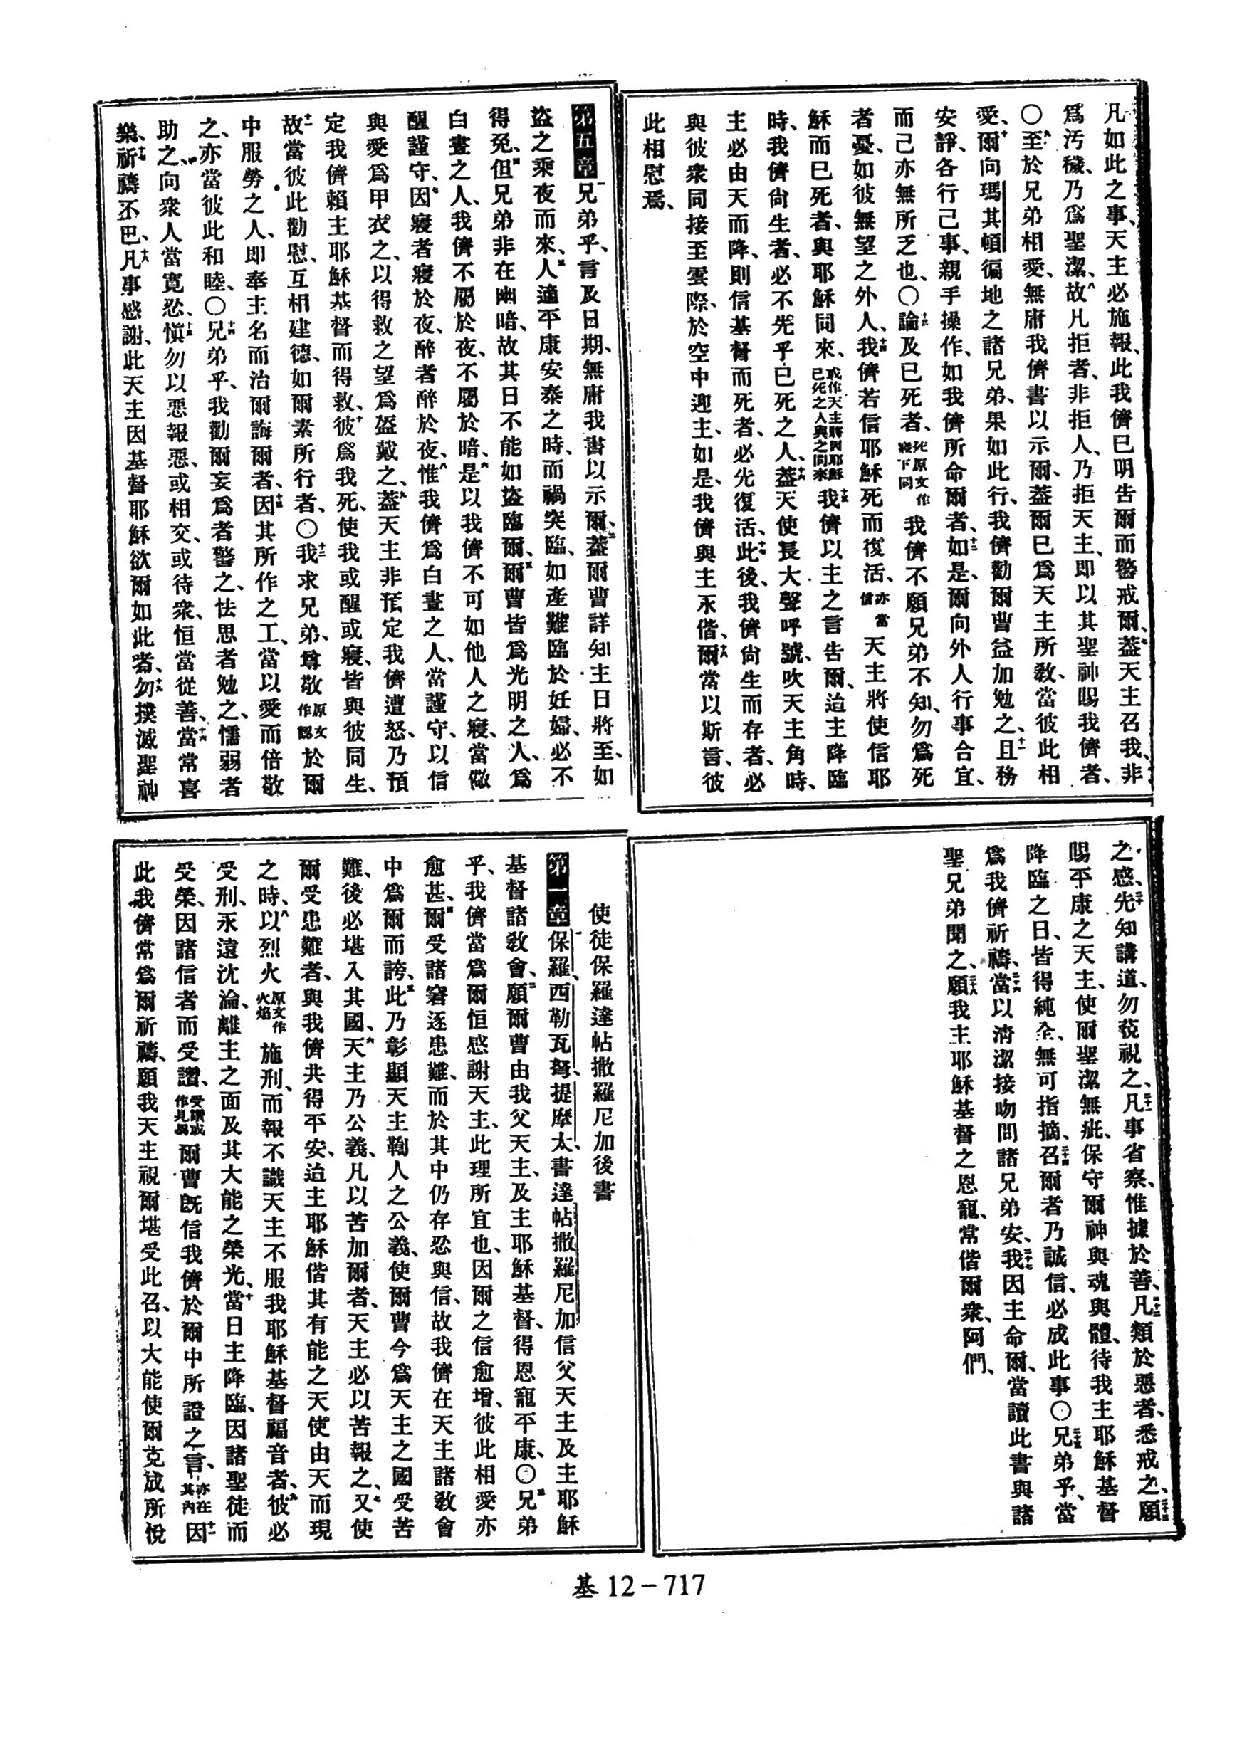 凡如此之事、天主必施報、此我儕已明告爾而警戒爾、蓋天主召我、非
爲汚穢、乃爲聖潔、故凡拒者、非拒人、乃拒天主、即以其聖神賜我儕者、
〇至於兄弟相愛、無庸我儕書以示爾、蓋爾已爲天主所敎、當彼此相
愛、爾向瑪其頓徧地之諸兄弟、果如此行、我儕勸爾曹益加勉之、且務
安靜、各行己事、親手操作、如我儕所命爾者、如是、爾向外人行事合宜、
而己亦無所乏也、〇論及已死者、死原文作寢下同我儕不願兄弟不知、勿爲死
者憂、如彼無望之外人、我儕若信耶穌死而復活、亦當信天主將使信耶
穌而已死者、與耶穌同來、或作天主將因耶穌已死之人與之同來我儕以主之言告爾、迨主降臨
時、我儕尙生者、必不先乎已死之人、蓋天使長大聲呼號、吹天主角時、
主必由天而降、則信基督而死者、必先復活、此後、我儕尙生而存者、必
與彼衆同接至雲際、於空中迎主、如是、我儕與主永偕、爾當以斯言、彼
此相慰焉、
第五章兄弟乎、言及日期、無庸我書以示爾、蓋爾曹詳知主日將至、如
盜之乘夜而來、人適平康安泰之時、而禍突臨、如產難臨於妊婦、必不
得免、但兄弟非在幽暗、故其日不能如盜臨爾、爾曹皆爲光明之人、爲
白晝之人、我儕不屬於夜、不屬於暗、是以我儕不可如他人之寢、當儆
醒謹守、因寢者寢於夜、醉者醉於夜、惟我儕爲白晝之人、當謹守、以信
與愛爲甲衣之、以得救之望爲盔戴之、蓋天主非預定我儕遭怒、乃預
定我儕賴主耶穌基督而得救、彼爲我死、使我或醒或寢、皆與彼同生、
故當彼此勸慰、互相建德、如爾素所行者、〇我求兄弟、尊敬原文作認於爾
中服勞之人、即奉主名而治爾誨爾者、因其所作之工、當以愛而倍敬
之、亦當彼此和睦、〇兄弟乎、我勸爾妄爲者警之、怯思者勉之、懦弱者
助之、向衆人當寬忍、愼勿以惡報惡、或相交、或待衆、恒當從善、當常喜
樂、祈禱不已、凡事感謝、此天主因基督耶穌欲爾如此者、勿撲滅聖神
之感、先知講道、勿藐視之、凡事省察、惟據於善、凡類於惡者、悉戒之、願
賜平康之天主、使爾聖潔無疵、保守爾神與魂與體、待我主耶穌基督
降臨之日、皆得純全、無可指摘、召爾者乃誠信、必成此事〇兄弟乎、當
爲我儕祈禱、當以淸潔接吻問諸兄弟安、我因主命爾、當讀此書與諸
聖兄弟聞之、願我主耶穌基督之恩寵、常偕爾衆、阿們、
使徒保羅達帖撒羅尼加後書
第一章保羅、西勒瓦努、提摩太、書達帖撒羅尼加信父天主及主耶穌
基督諸敎會、願爾曹由我父天主、及主耶穌基督、得恩寵平康、〇兄弟
乎、我儕當爲爾恒感謝天主、此理所宜也、因爾之信愈增、彼此相愛亦
愈甚、爾受諸窘逐患難、而於其中仍存忍與信、故我儕在天主諸敎會
中爲爾而誇、此乃彰顯天主鞫人之公義、使爾曹今爲天主之國受苦
難、後必堪入其國、天主乃公義、凡以苦加爾者、天主必以苦報之、又使
爾受患難者、與我儕共得平安、迨主耶穌偕其有能之天使由天而現
之時、以烈火原文作火焰施刑、而報不識天主不服我耶穌基督福音者、彼必
受刑、永遠沈淪、離主之面及其大能之榮光、當日主降臨、因諸聖徒而
受榮、因諸信者而受讚、受讚或作見異爾曹旣信我儕於爾中所證之言、亦在其內因
此我儕常爲爾祈禱、願我天主視爾堪受此召、以大能使爾克成所悅
基 12－717